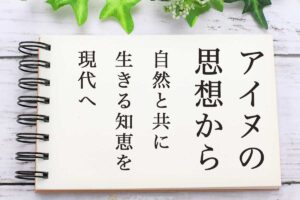 アイヌの
思想から
自然と共に
生きる知恵を
現代へ